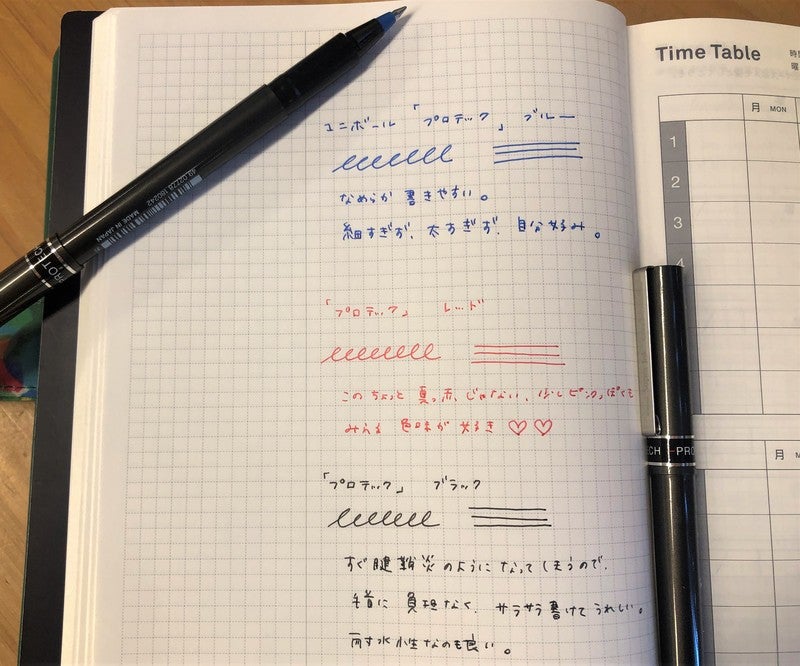 ユニボール 「プロテック」 ブルー
なめらか 書きやすい。
細すぎず、太すぎず、自分好み。
「プロテック」 レッド
このちょっと真っ赤、じゃない、少しピンクっぽくも
みえる 色味が 好き ♡♡
「プロテック」 ブラック
すぐ 腱鞘炎のようになってしまうので、
手首に 負担なく、サラサラ書けてうれしい。
耐水性なのも良い。
MADE IN JAPAN
PROTECH
Time Table
時
曜
月 MON
1
2
3
4
月 M
ECH
PRO